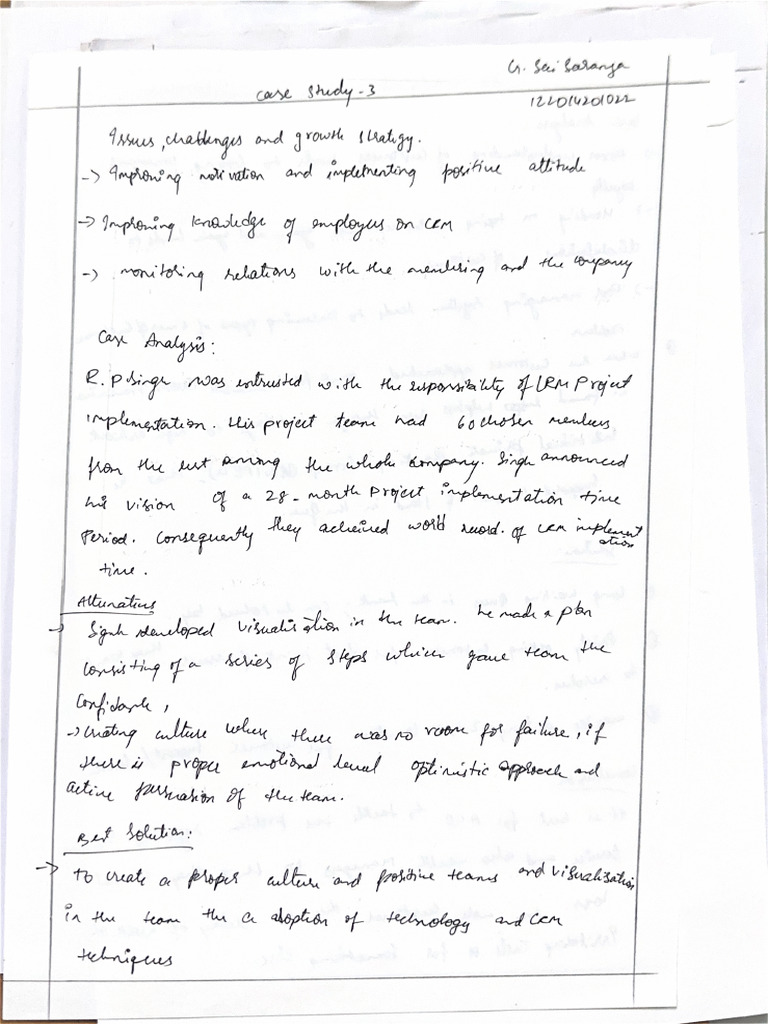 G. Sai Saranya
Case Study-3
122014201022
Issues, challenges and growth strategy.
-> Improving motivation and implementing positive attitude
-> Improving knowledge of employees on CRM
-> monitoring relations with the membering and the company
Case Analysis:
R. P Singh was entrusted with the responsibility of CRM Project
implementation. His project team had 60 chosen members
from the out among the whole company. Singh announced
his vision of a 28-month project implementation time
Period. Consequently they acheived world record of CRM implement
ation
time.
Alternatives
-> Signh developed visualisation in the team. he made a plan
consisting of a series of steps which gave team the
Confidante,
-> creating culture where there was no room for failure, if
there is proper emotional level optimistic approach and
active persuasion of the team.
Best Solution:
-> to create a proper culture and positive teams and visualisation
in the team the a adoption of technology and CRM
techniques